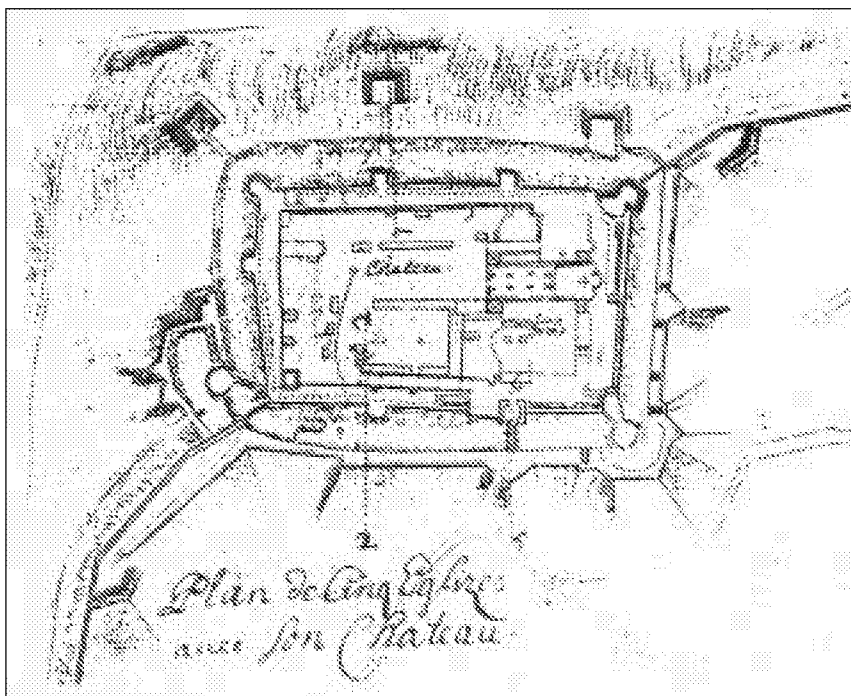 Chateau
2
Plan de Cinq Eglises
avec son Chateau